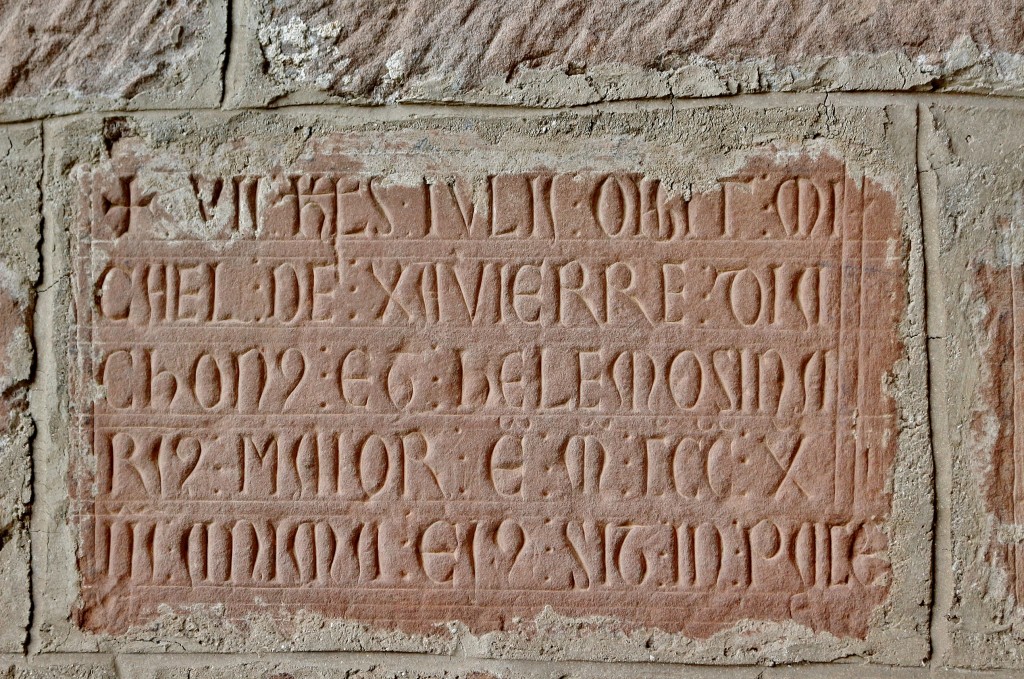 ✠ VII : KĽES : IVLII : OBIIT : MI
CHAEL : DE : XAVIERRE : DIA
CHON9 : ET : HELEMOSINA
RI9 : MAIOR : E : M : ICC : X
III : ANIMA : EI9 : SIT : IN : PACE